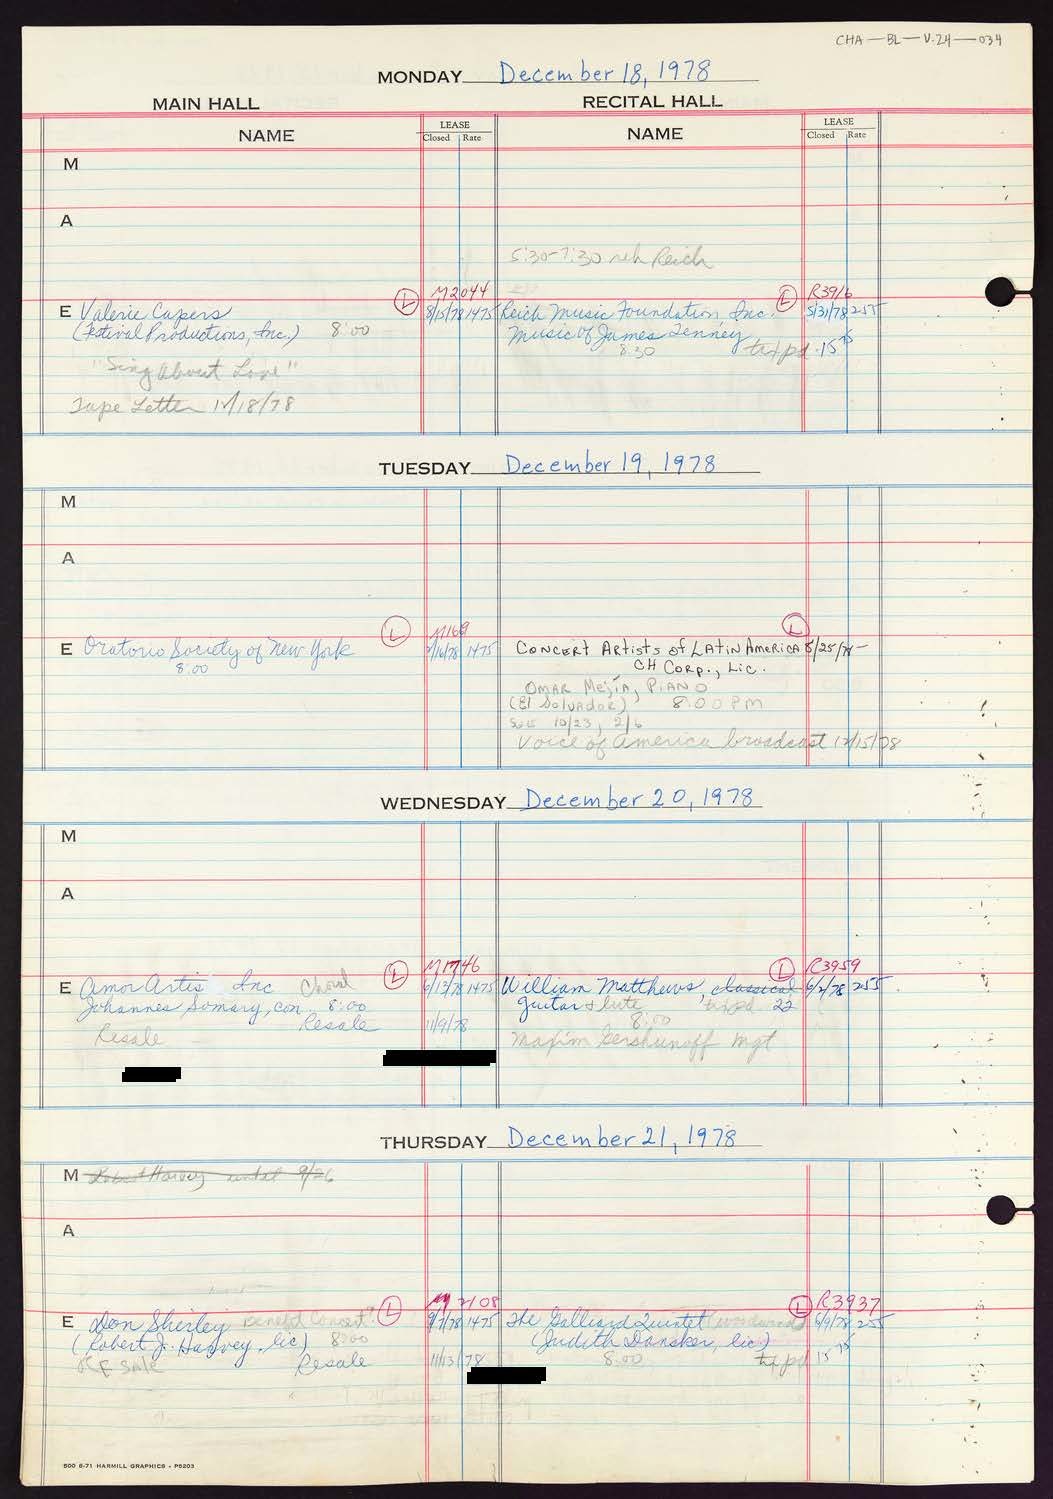 CHA — BL — V.24 — 034
MONDAY December 18, 1978
MAIN HALL
RECITAL HALL
NAME
LEASE
Closed Rate
NAME
LEASE
Closed Rate
M
A
5:30-7:30 reh Reich
M2044
R3916
E Valerie Capers L 8/15/78 1475
(Festival Productions, Inc.) 8:00
"Sing About Love"
Tape Letter 12/18/78
Reich Music Foundation Inc. L 5/31/78 255
Music of James Tenney
8:30 txpd. 15
TUESDAY December 19, 1978
M
A
M169
E Oratorio Society of New York L 1475
8:00
L
Concert Artists of Latin America 8/25/78 —
CH Corp., Lic.
Omar Mejía, Piano
(El Salvador) 8:00 PM
10/23, 2/6
Voice of America broadcast 12/15/78
WEDNESDAY December 20, 1978
M
A
M1746
R3959
E Amor Artis Inc Choral L 6/13/78 1475
Johannes Somary, con. 8:00
Resale 11/9/78
Resale
William Matthews classical L 6/2/78 255
guitar & lute txpd 22
8:00
Maxim Gershunoff Mgt
THURSDAY December 21, 1978
M Robert Harvey until 9/26
A
M 2108
R3937
E Don Shirley Benefit Concert? L 9/7/78 1475
(Robert J. Harvey, lic) 8:00
Off Sale Resale 11/13/78
The Galliard Quintet (woodwinds) L 6/9/78 255
(Judith Dansker, lic)
8:00 txpd 15
500 6-71 HARMILL GRAPHICS - P5203